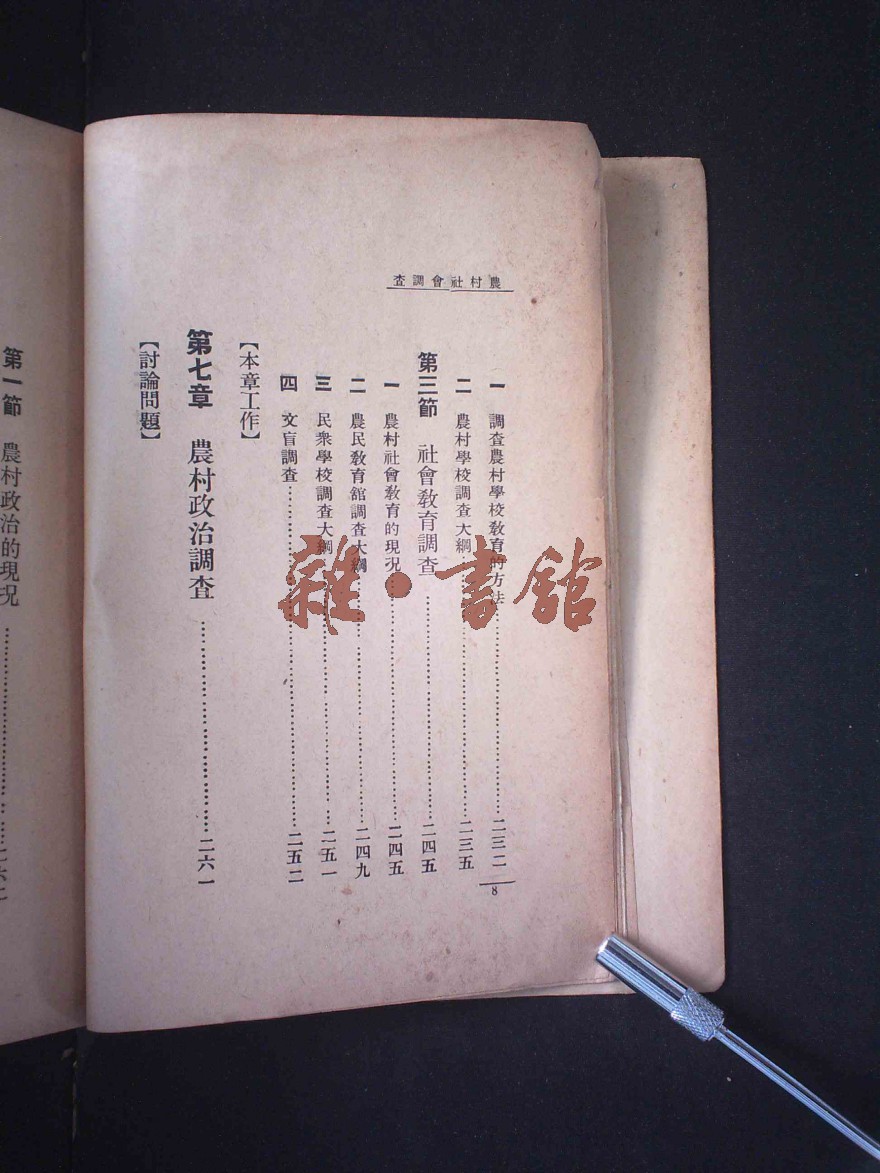 農村社會調查
一 調查農村學校敎育的方法……二三二
二 農村學校調查大綱……二三五
第三節 社會敎育調查……二四五
一 農村社會敎育的現况……二四五
二 農民敎育館調查大綱……二四九
三 民衆學校調查大綱……二五一
四 文盲調查……二五二
【本章工作】
第七章 農村政治調查……二六一
【討論問題】
8
第一節 農村政治的現况……
雜·書館